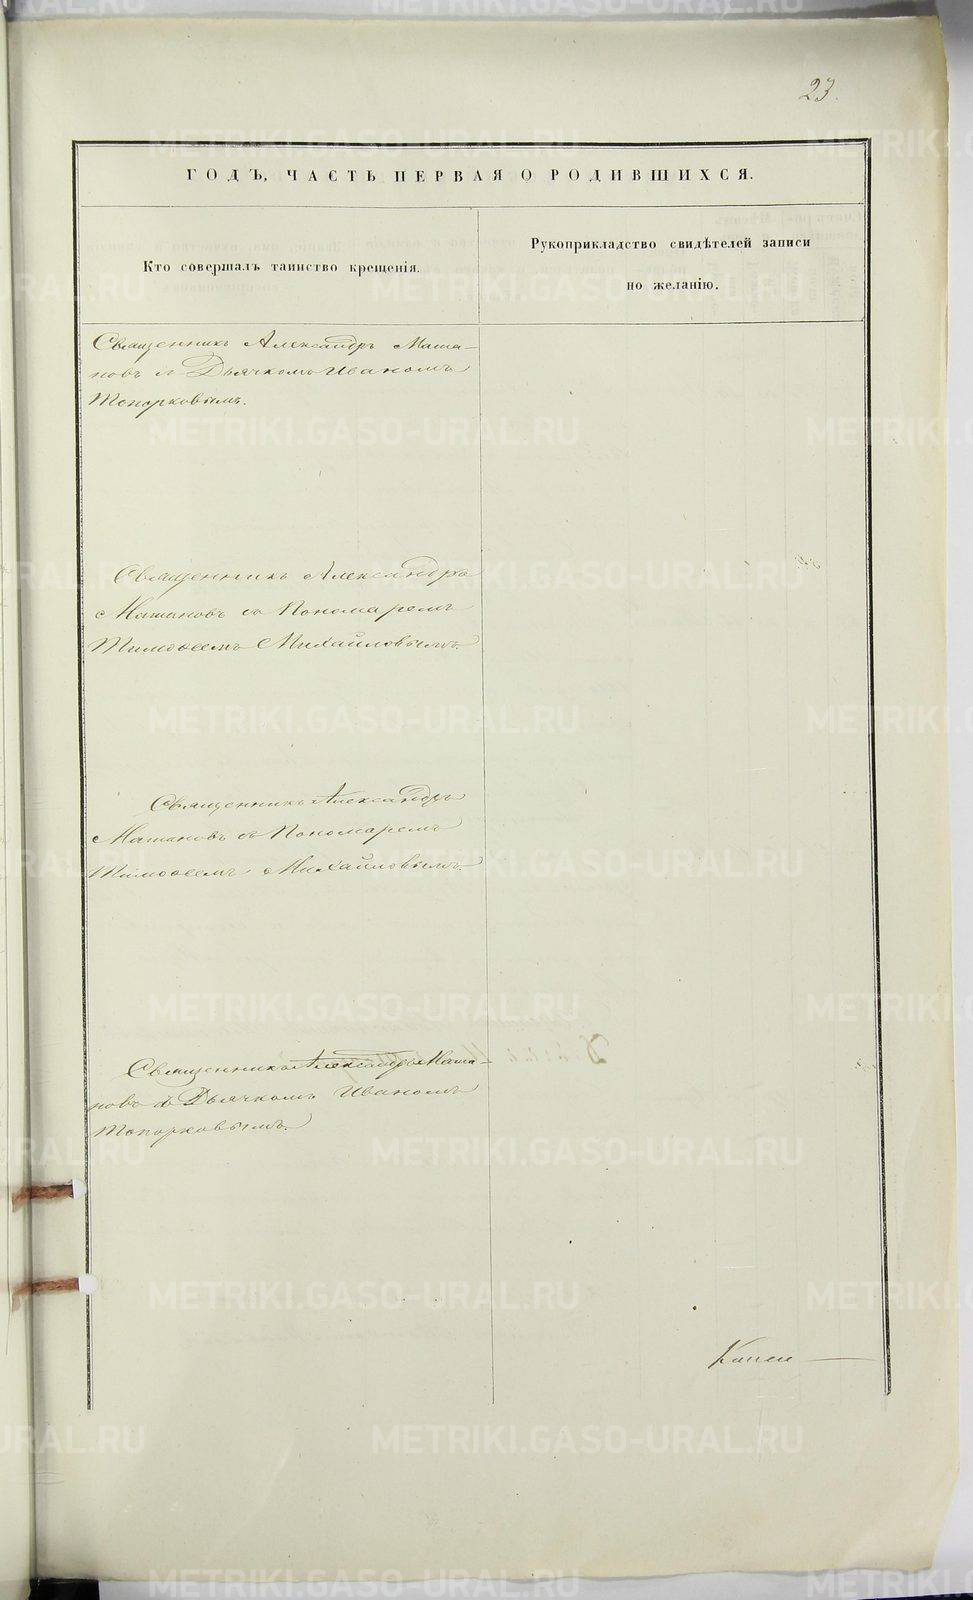 23.
ГОДЪ, ЧАСТЬ ПЕРВАЯ О РОДИВШИХСЯ.
Кто совершалъ таинство крещенія.
Рукоприкладство свидѣтелей записи
по желанію.
Священникъ Александръ Маша-
новъ съ Дьячкомъ Иваномъ
Топорковымъ.
Священникъ Александръ
Машановъ съ Пономаремъ
Тимофеемъ Михайловымъ.
Священникъ Александръ
Машановъ съ Пономаремъ
Тимофеемъ Михайловымъ.
Священникъ Александръ Маша-
новъ съ Дьячкомъ Иваномъ
Топорковымъ.
METRIKI.GASO-URAL.RU